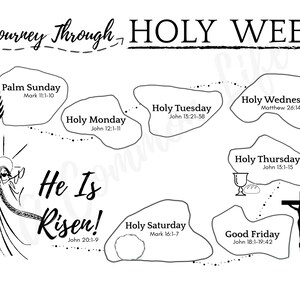 ourney Through HOLY WEE
Palm Sunday
Mark 11:1-10
Holy Monday
John 12:1-11
Holy Tuesday
John 13:21-38
Holy Wednes
Matthew 26:14
Holy Thursday
John 13:1-15
Good Friday
John 18:1-19:42
Holy Saturday
Mark 16:1-7
He Is
Risen!
John 20:1-9